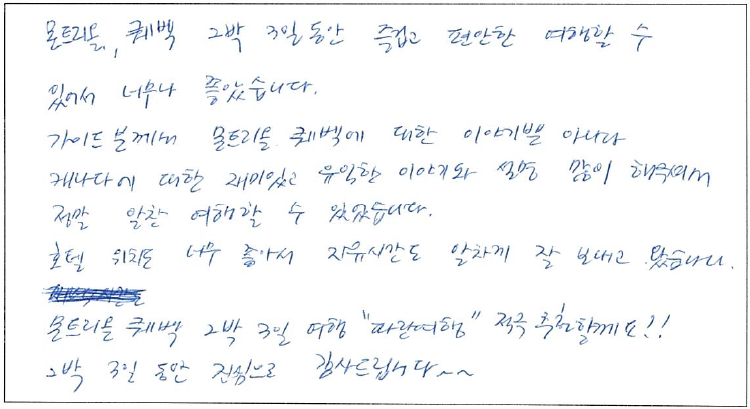 몬트리올, 퀘벡 2박 3일동안 즐겁고 편안한 여행할 수
있어서 너무나 좋았습니다.
가이드분께서 몬트리올, 퀘벡에 대한 이야기뿐 아니라
캐나다에 대한 재미있고 유익한 이야기와 설명 많이 해주셔서
정말 알찬 여행할 수 있었습니다.
호텔 위치도 너무 좋아서 자유시간도 알차게 잘 보내고 왔습니다.
몬트리올 퀘벡 2박 3일 여행 "파란여행" 적극 추천할께요!!
2박 3일 동안 진심으로 감사드립니다~~